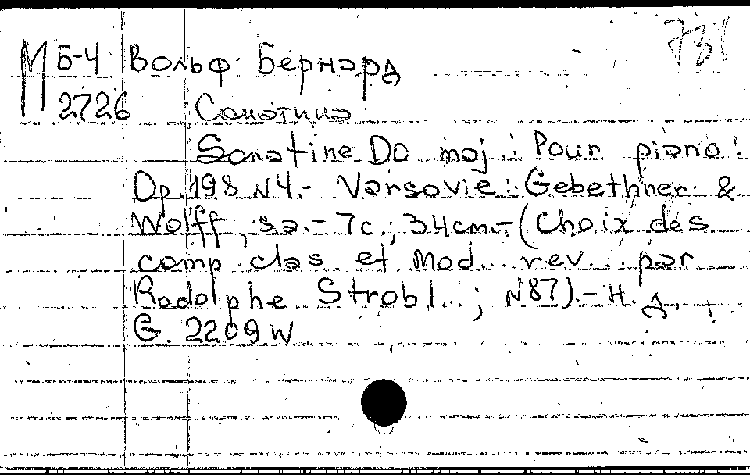 М Б-4 Вольф Бернард 731
2726 Сонатина
Sonatine Do maj : Pour piano :
Op. 198 N4.- Varsovie : Gebethner &
Wolff, sa.- 7c.; 34cm.- (Choix des
comp clas et mod rev par
Rodolphe Strobl ; N87).- Н. Д.
G. 2209 W